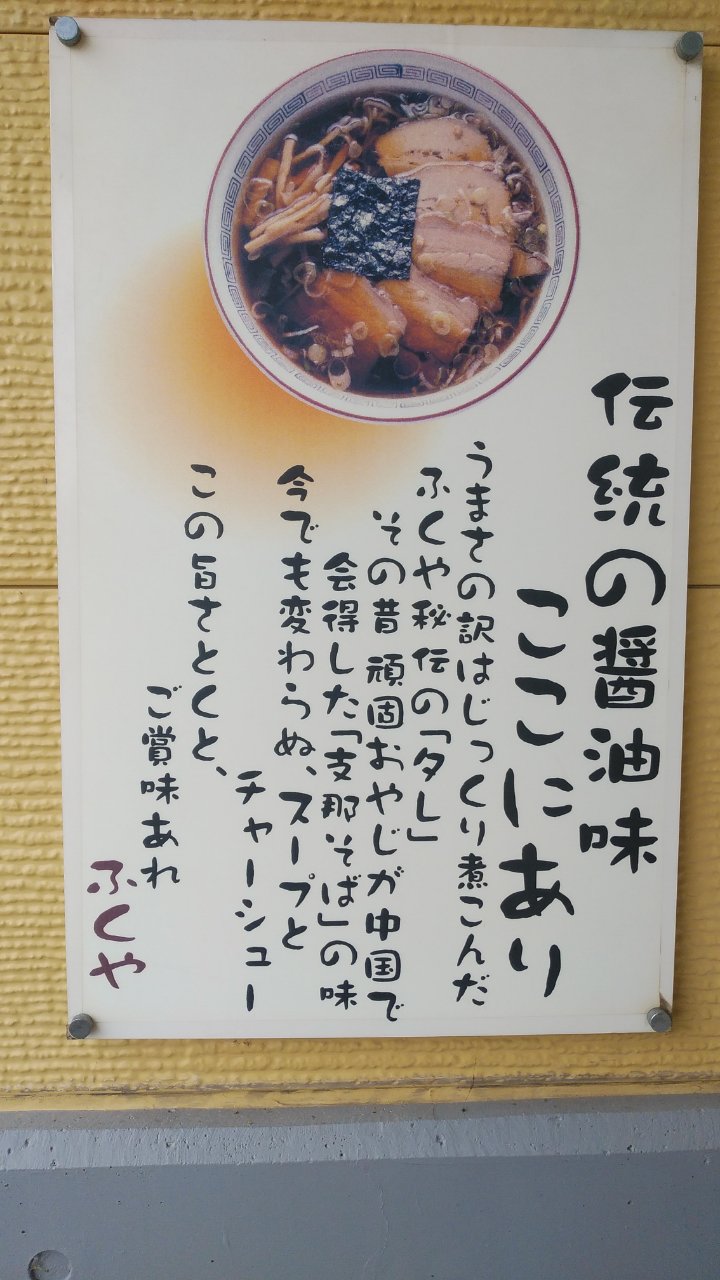 伝統の醤油味
ここにあり
うまさの訳はじっくり煮こんだ
ふくや秘伝の「タレ」
その昔 頑固おやじが中国で
会得した「支那そば」の味
今でも変わらぬ、スープと
チャーシュー
この旨さとくと、
ご賞味あれ
ふくや